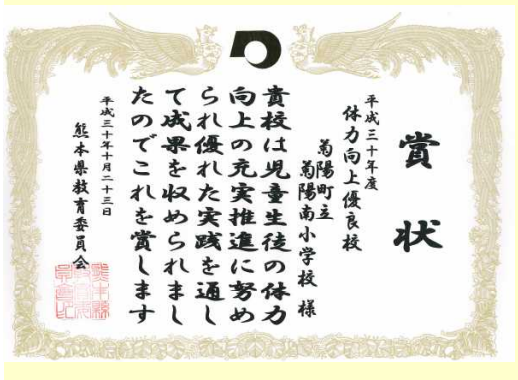 賞状
平成三十年度
体力向上優良校
菊陽町立
菊陽南小学校 様
貴校は児童生徒の体力
向上の充実推進に努め
られ優れた実践を通し
て成果を収められまし
たのでこれを賞します
平成三十年十月二十三日
熊本県教育委員会